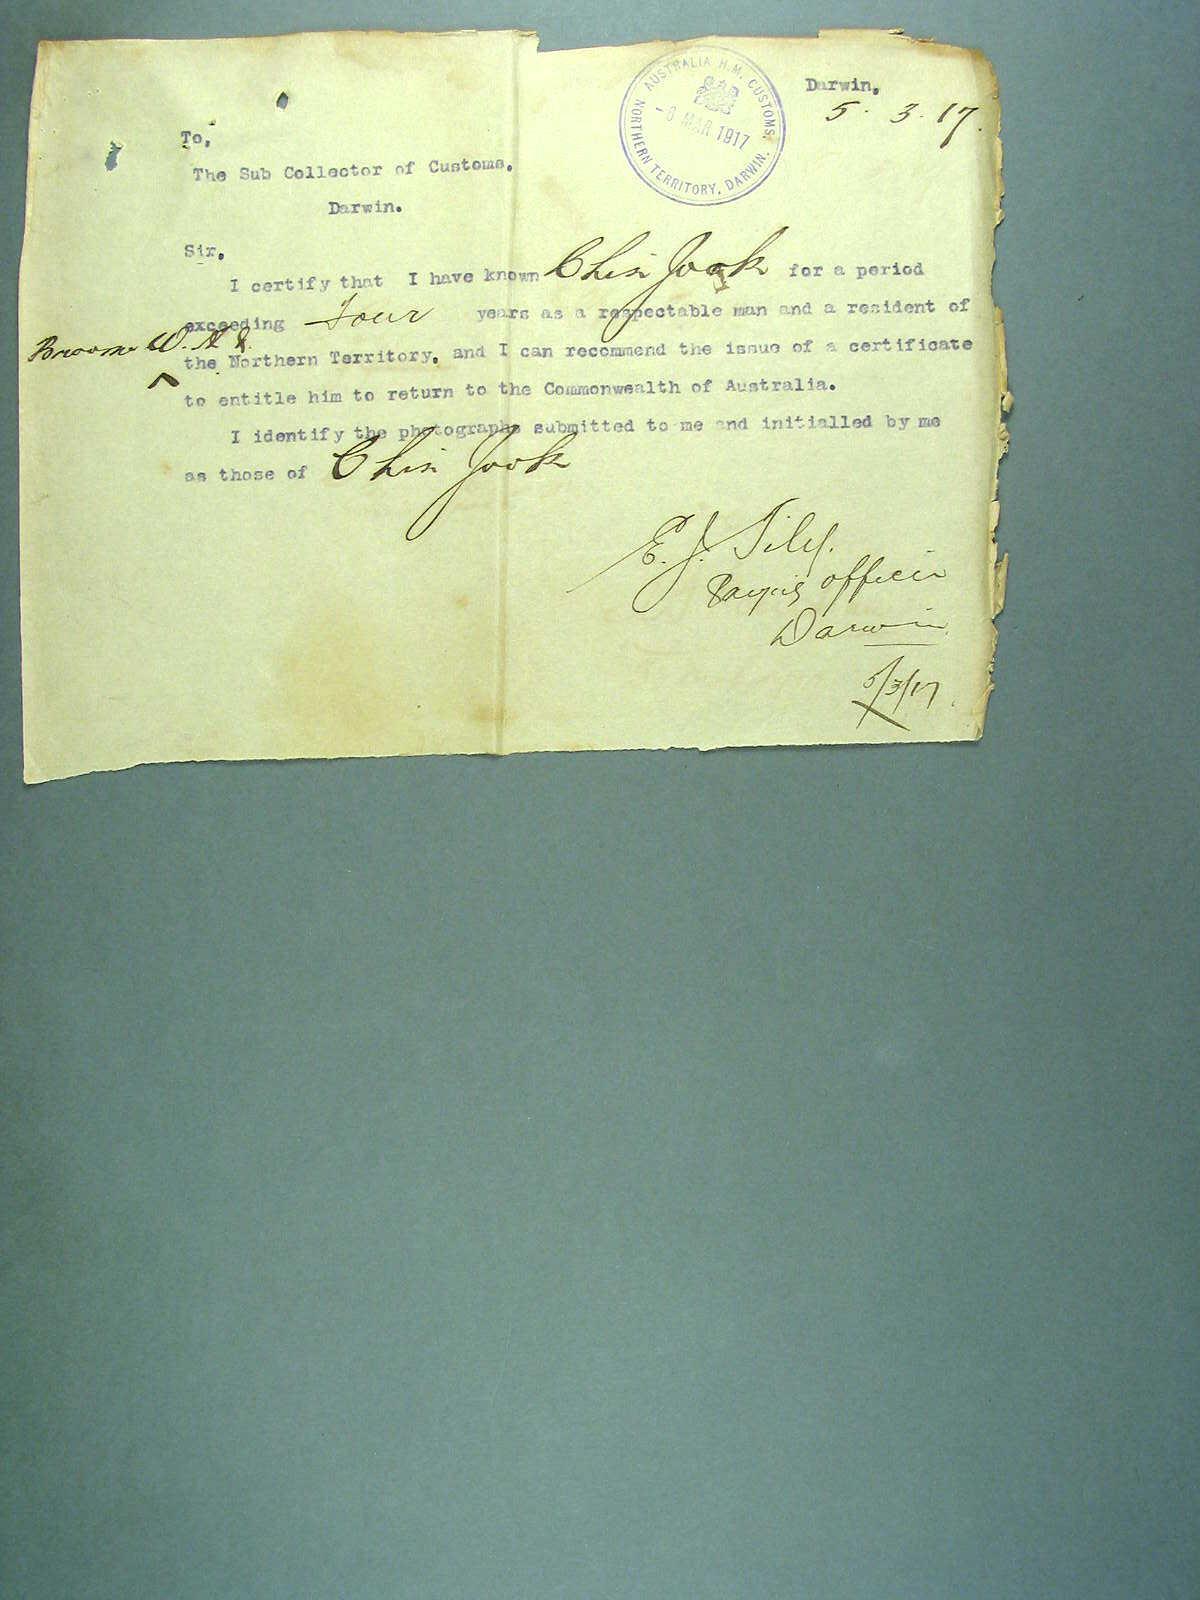 AUSTRALIA H.M. CUSTOMS.
-8 MAR 1917
NORTHERN TERRITORY, DARWIN.
Darwin.
5. 3. 17.
To,
The Sub Collector of Customs.
Darwin.
Sir,
I certify that I have known Chin Jook for a period
exceeding Four years as a respectable man and a resident of
Broome W.A &
the Northern Territory, and I can recommend the issue of a certificate
to entitle him to return to the Commonwealth of Australia.
I identify the photographs submitted to me and initialled by me
as those of Chin Jook
E. J. Tily.
officer
Darwin
5/3/17